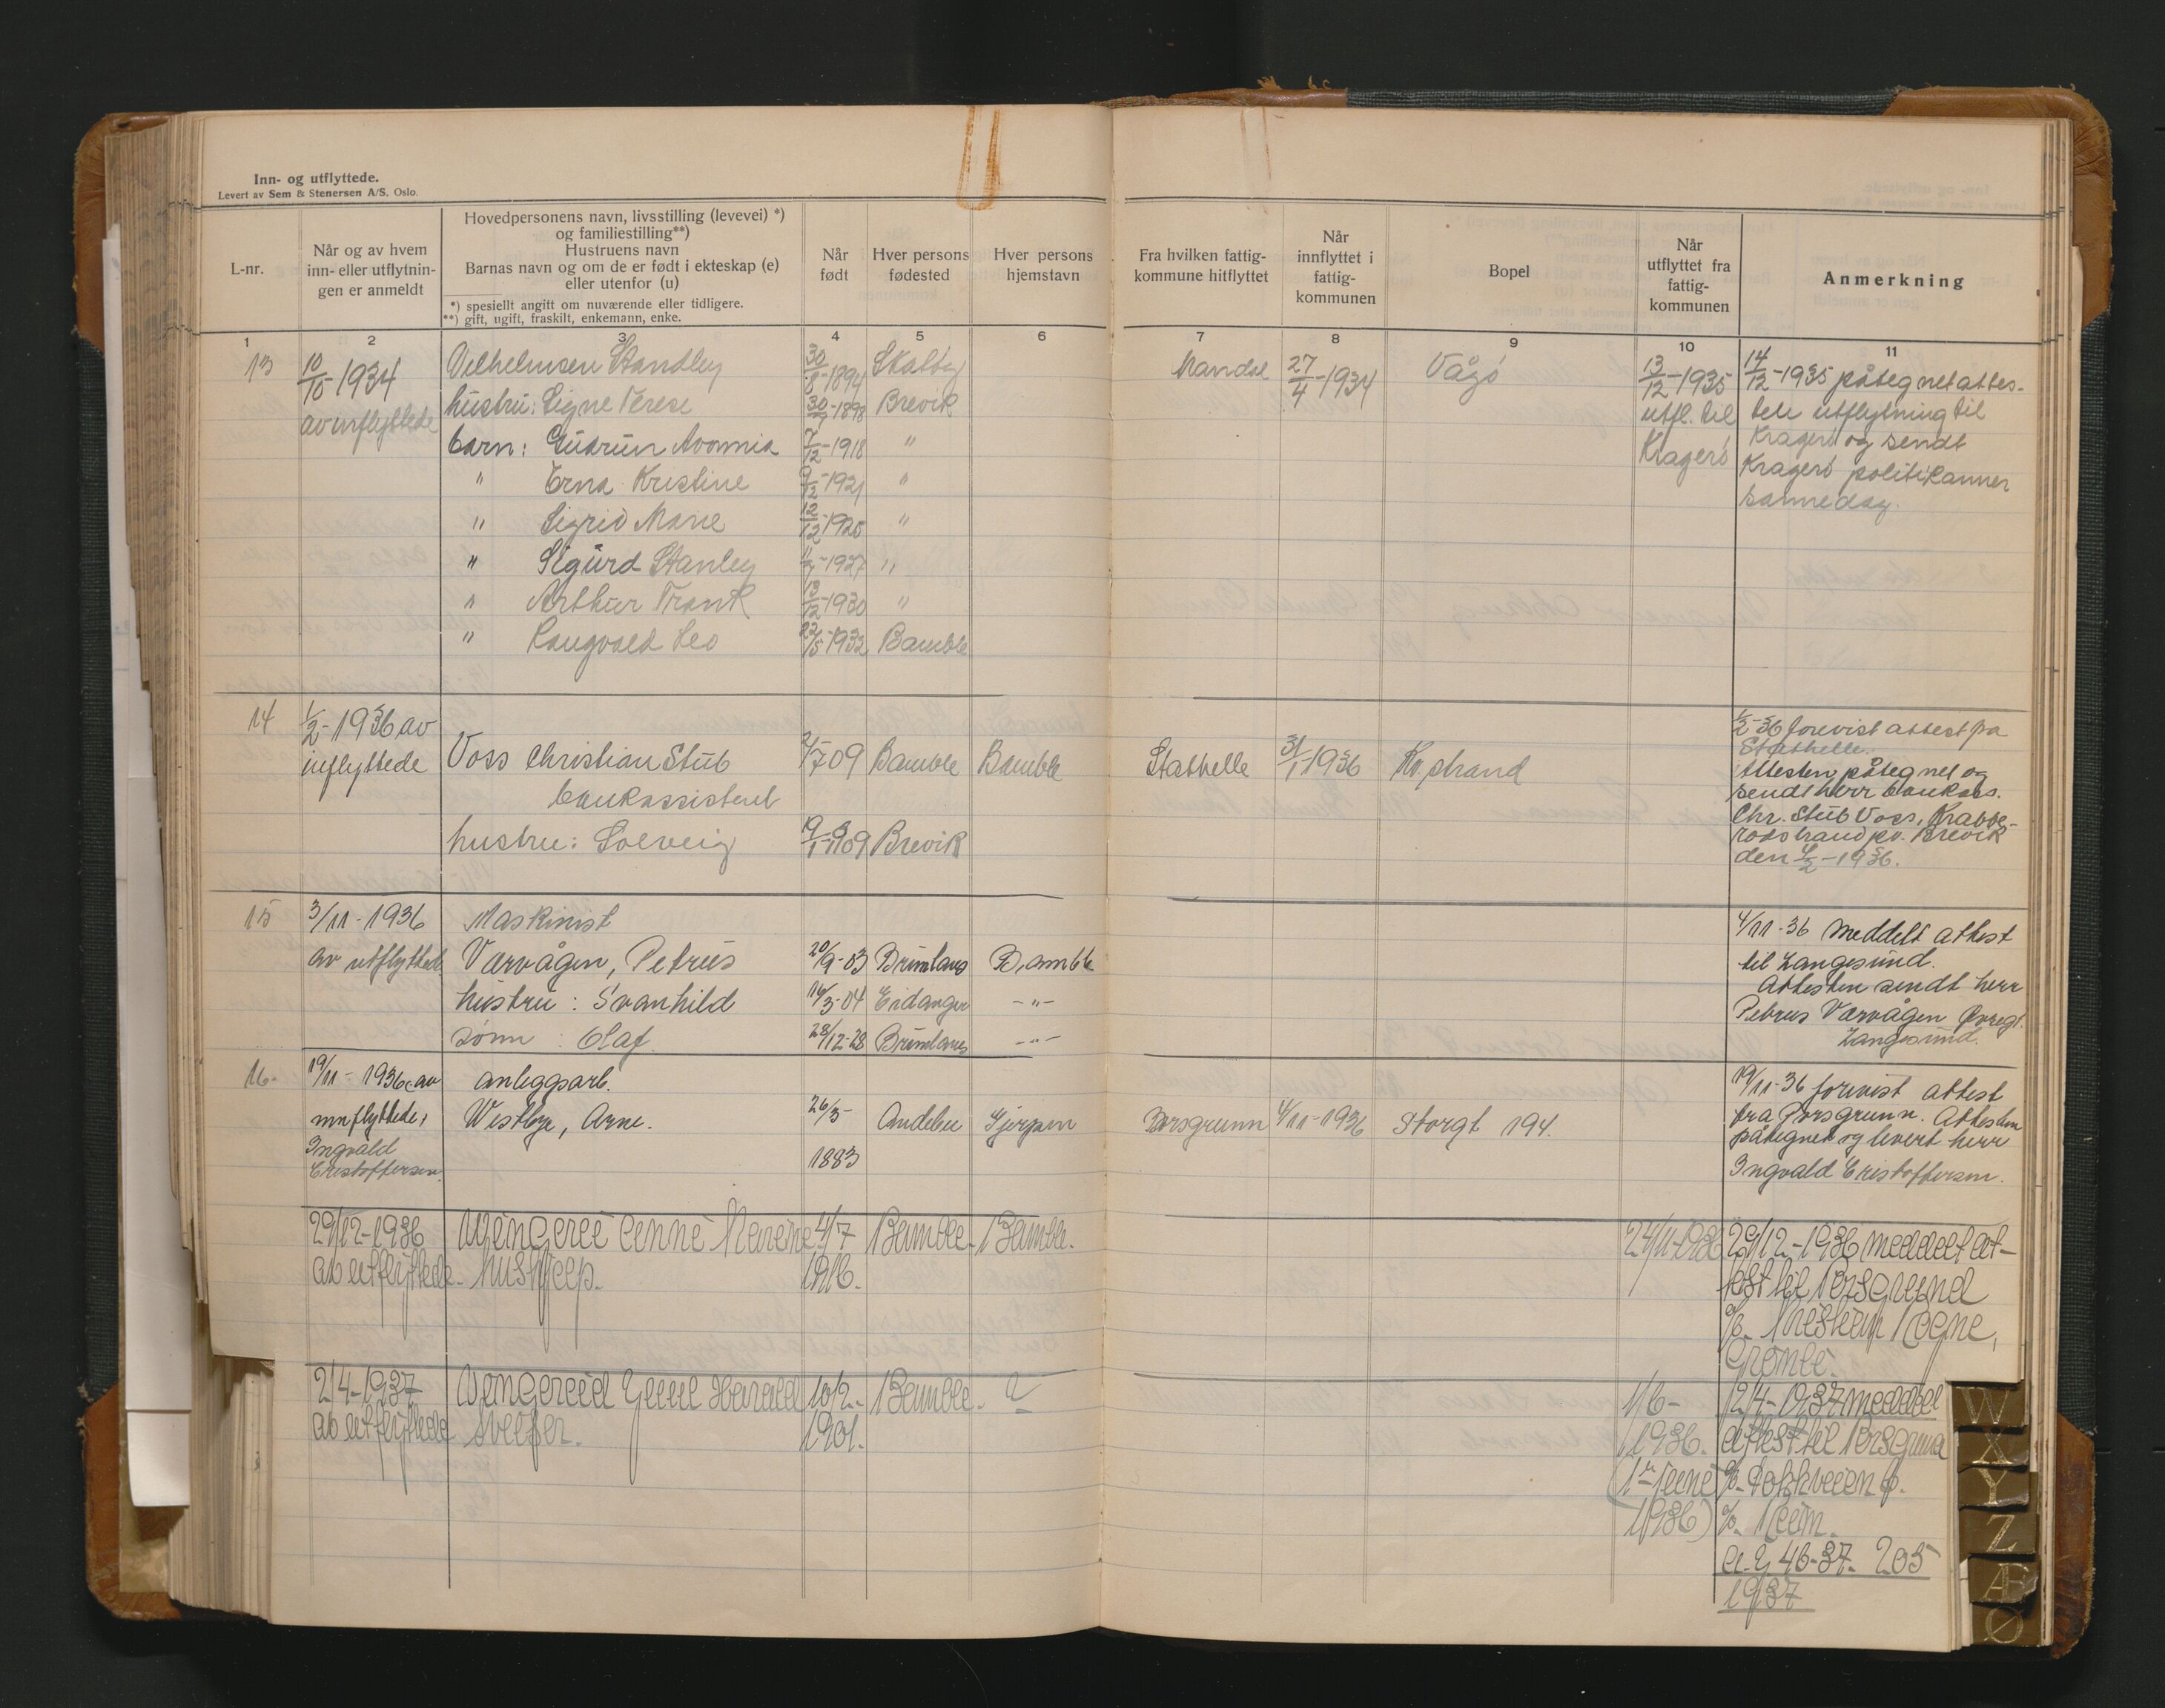 Inn- og utflyttede.
Levert av Sem & Stenersen A/S. Oslo.
L-nr.
Når og av hvem
inn- eller utflytnin-
gen er anmeldt
Hovedpersonens navn, livsstilling (levevei) *)
og familiestilling**)
Hustruens navn
Barnas navn og om de er født i ekteskap (e)
eller utenfor (u)
*) spesiellt angitt om nuværende eller tidligere.
**) gift, ugift, fraskilt, enkemann, enke.
Når
født
Hver persons
fødested
Hver persons
hjemstavn
Fra hvilken fattig-
kommune hitflyttet
Når
innflyttet i
fattig-
kommunen
Bopel
Når
utflyttet fra
fattig-
kommunen
Anmerkning
1 2 3 4 5 6 7 8 9 10 11
13 10/10-1934 Vilhelmsen Standley 30/8-1894 Mandal 27/4-1934 Vågø 13/12-1935 14/12-1935 påtegnet attes-
av innflyttede hustru: Signe Terese 30/7-1898 Brevik utfl. til ten utflytning til
barn: Gudrun 7/12-1918 " Kragerø Kragerø og sendt
" Erna Kristine 9/12-1921 " Kragerø politikammer
" Sigrid Marie 12/12-1925 " samme dag.
" Sigurd Stanley 1927 "
" Arthur Frank 13/12-1930 "
" Rangvald Leo 22/5-1932 Bamble
14 1/2-1936 av 1/2-36 forevist attest fra
innflyttede Voss Christian Stub 2/7 09 Bamble Bamble Stathelle 31/1 1936 Kr.strand Stathelle.
bankassistent Attesten påtegnet og
sendt herr bankass.
hustru: Solveig 19/1-1909 Brevik Chr. Stub Voss, Krabbe-
rødstrand pr. Brevik
den 4/2-1936.
15 3/11-1936 Maskinist 4/11-36 meddelt attest
av utflyttede Varvågen, Petrus 20/9-03 Brunlanes Bamble til Langesund.
hustru: Svanhild 16/3-04 Eidanger -"- Attesten sendt herr
Petrus Varvågen Øvregt.
sønn: Olaf. 28/12-28 Brunlanes -"- Langesund.
16. 19/11-1936 av anleggsarb. 19/11-36 forevist attest
innflyttede, Westbye, Arne. 26/3- Andebu Gjerpen Porsgrunn 4/11-1936 Storgt 194. fra Porsgrunn. Attesten
Ingvald påtegnet og levert herr
Cristoffersen. 1883 Ingvald Cristoffersen.
29/12-1936 4/7 Bamble. Bamble. 24/11-1936 29/12-1936 meddelt at-
av utflyttede. hushjelp. 1916. test til Porsgrund
c/o.
2/4-1937 Harald 10/2.- Bamble. ? 1/6- 2/4-1937 meddel
av utflyttede 1901. 1936. attest til Porsgrund
(1ste juni
1936) c/o.
46-37. 205
1937
W
X
Y
Z
Æ
Ø